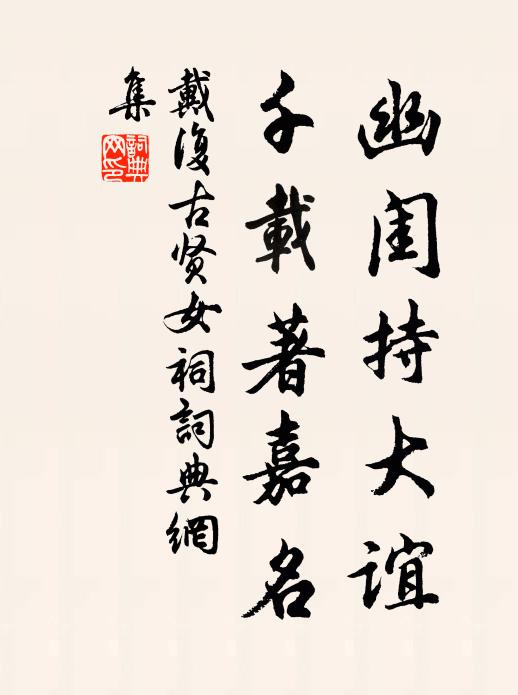 幽闺持大谊
千載著嘉名
戴復古贤女祠詞典網
集
詞典
网印